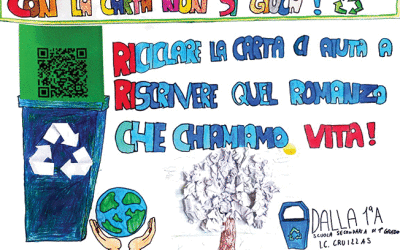 CON LA CARTA NON SI GIOCA!
RICICLARE LA CARTA CI AIUTA A
RISCRIVERE QUEL ROMANZO
CHE CHIAMIAMO VITA!
DALLA 1ªA
SCUOLA SECONDARIA DI 1º GRADO
I.C. CRUILLAS